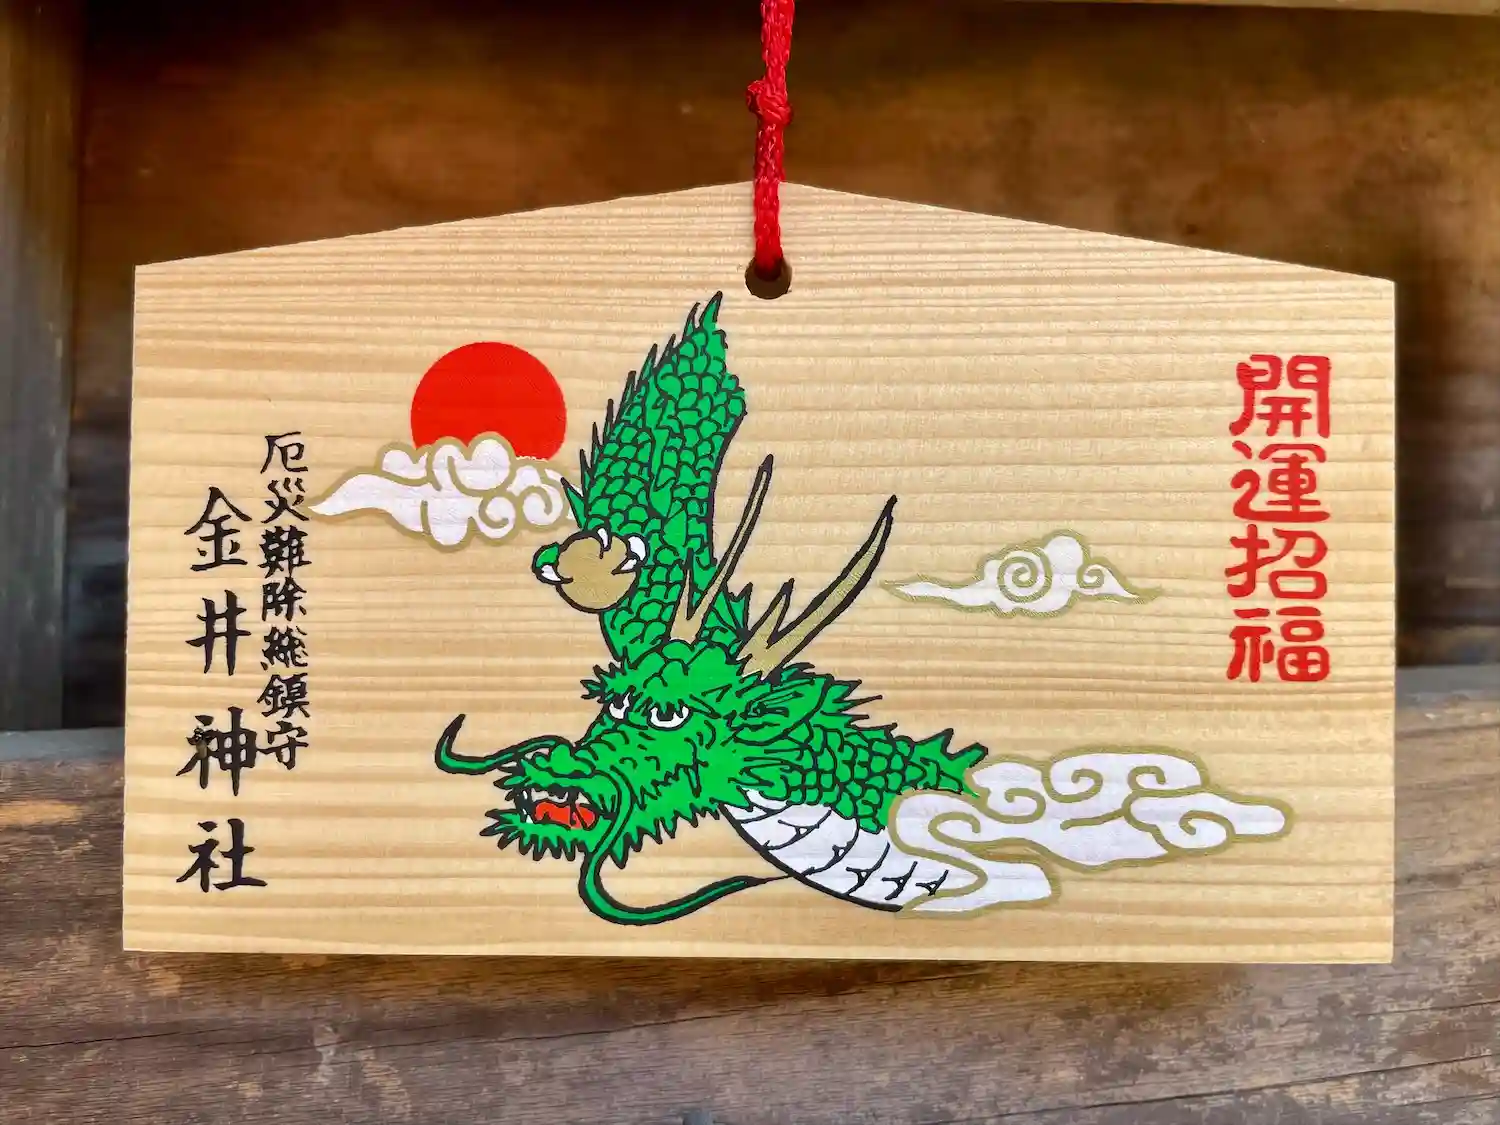 開運招福
厄災難除総鎮守
金井神社